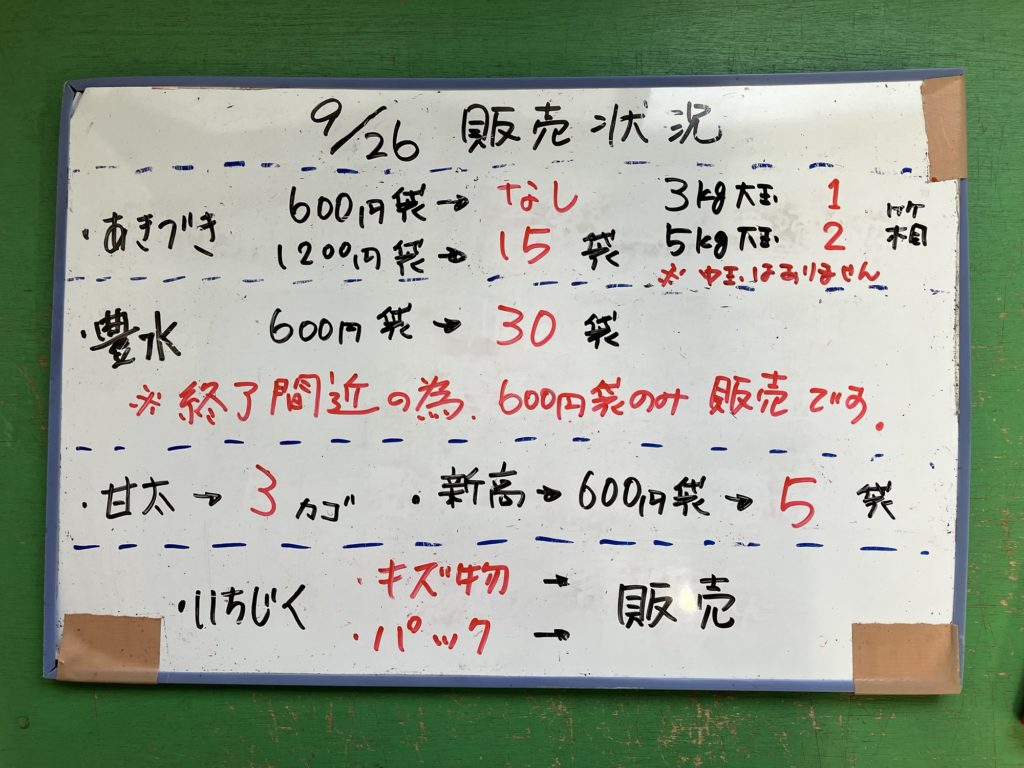 9/26 販売状況
・あきづき
600円袋→なし
1200円袋→15袋
3kg大玉 1
5kg大玉 2
箱
※中玉はありません
・豊水 600円袋→30袋
※終了間近の為、600円袋のみ販売です。
・甘太→3カゴ ・新高→600円袋→5袋
・いちじく
・キズ物→
・パック→
販売